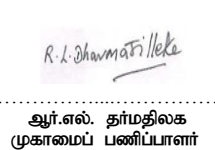 R. L. Dharmatilleke
ஆர்.எல். தர்மதிலக
முகாமைப் பணிப்பாளர்